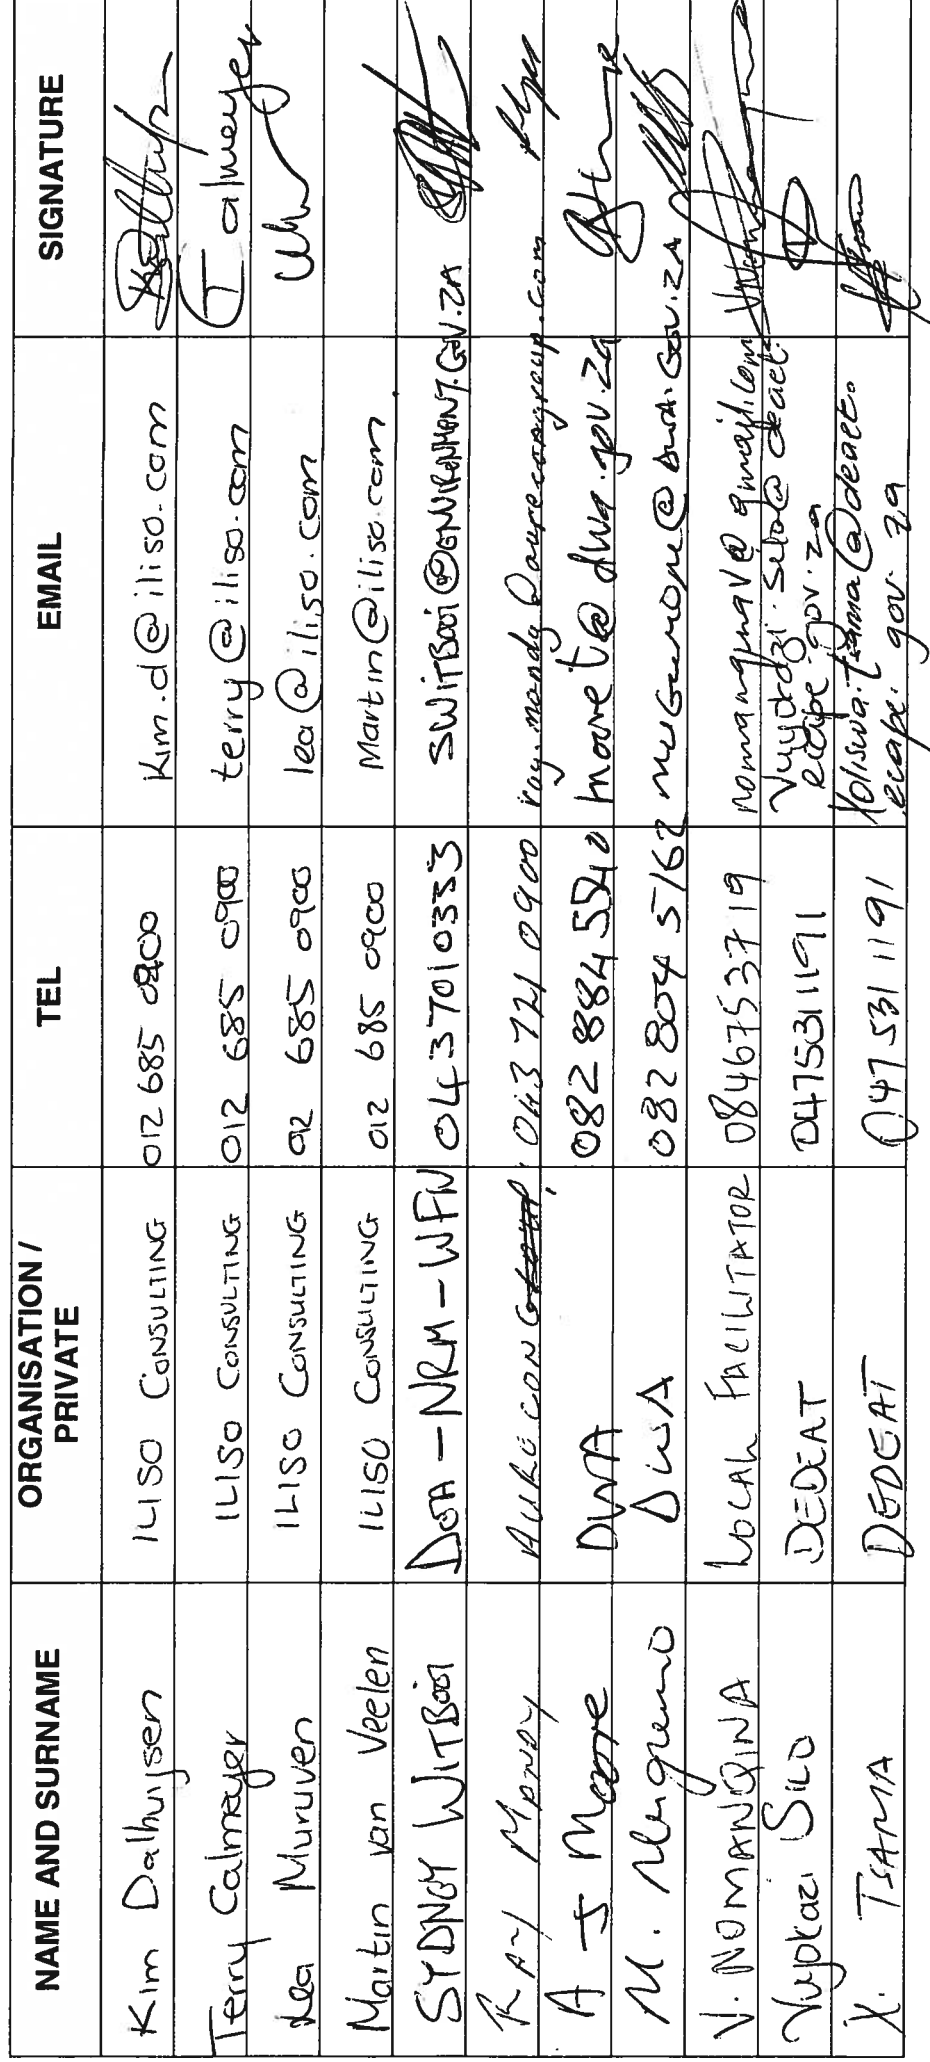 NAME AND SURNAME ORGANISATION / PRIVATE TEL EMAIL SIGNATURE
Kim Dalhuijsen ILISO CONSULTING 012 685 0900 Kim.d@iliso.com
Terry Calmeyer ILISO CONSULTING 012 685 0900 terry@iliso.com TCalmeyer
Lea Muruven ILISO CONSULTING 012 685 0900 lea@iliso.com
Martin van Veelen ILISO CONSULTING 012 685 0900 Martin@iliso.com
SYDNEY WITBOOI DOA-NRM-WFW 043 7010353 SWITBOOI@ENVIRONMENT.GOV.ZA
RAY MONDY AURECON 043 721 0900
A J Moore DWA 082 884 5540 mooret@dwa.gov.za
M. DWA 082 804 5162
V. NOMANQINA LOCAL FACILITATOR 0846753719 nomanqinave@gmail.com
Vuyokazi SILO DEDEAT 0475311191
X. TSAMA DEDEAT 047 531 1191 Xoliswa.tsama@deaet.
ecape.gov.za